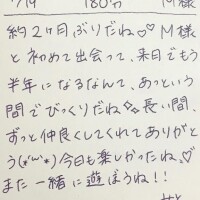 7/19 180分 M様
約2ヶ月ぶりだね♡ M様
と初めて出会って、来月でもう
半年になるなんて、あっという
間でびっくりだね✧✧長い間
ずっと仲良くしてくれてありがと
う(*´ω`*)今日も楽しかったね♡
また一緒に遊ぼうね!!